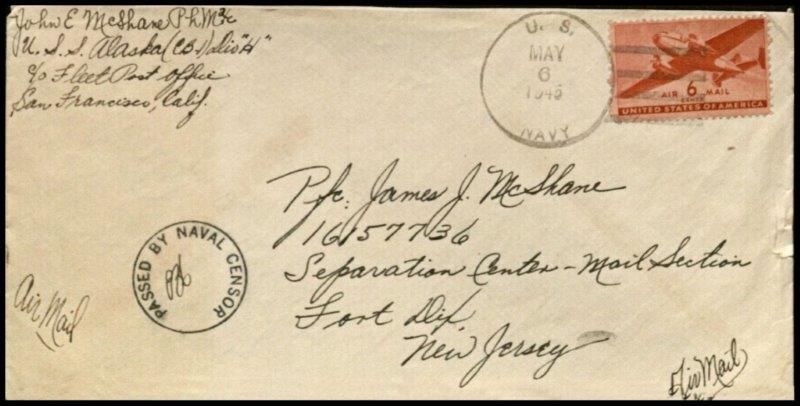 John E McShane PhM3/c
U.S.S. Alaska (CB-1) div "H"
c/o Fleet Post Office
San Francisco, Calif.
U. S.
MAY
6
1945
NAVY
6
CENTS
AIR MAIL
UNITED STATES OF AMERICA
Pfc. James J. McShane
16157736
Separation Center - Mail Section
Fort Dix,
New Jersey
PASSED BY NAVAL CENSOR
Air Mail
Air Mail